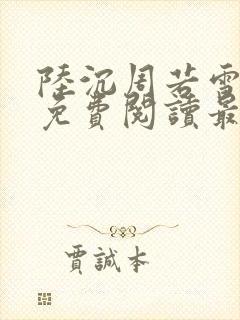 陸沉周若雪
免費閱讀最
賈誠本